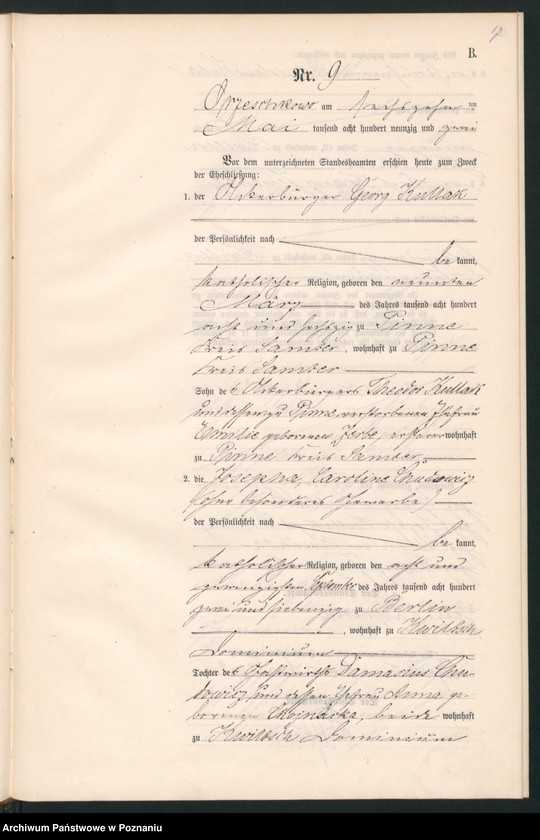 17
B.
Nr. 9
Orzeschkowo am sechszehnten
Mai tausend acht hundert neunzig und zwei
Vor dem unterzeichneten Standesbeamten erschien heute zum Zweck
der Eheschließung:
1. der Ackerbürger Georg Kullak
der Persönlichkeit nach
be kannt,
katholischer Religion, geboren den neunten
März des Jahres tausend acht hundert
acht und sechszig zu Pinne
Kreis Samter, wohnhaft zu Pinne
Kreis Samter
Sohn des Ackerbürgers Theodor Kullak
und dessen zu Pinne verstorbenen Ehefrau
Emilie geborenen, ersterer wohnhaft
zu Pinne Kreis Samter
2. die Josepha, Caroline Chudowicz
(ohne besonderes Gewerbe)
der Persönlichkeit nach
be kannt,
katholischer Religion, geboren den acht und
zwanzigsten September des Jahres tausend acht hundert
zwei und siebenzig zu Berlin
, wohnhaft zu Kwiltsch
Dominium
Tochter des Gastwirths Damasius Chu-
dowicz und dessen Ehefrau Anna ge-
borenen, beide wohnhaft
zu Kwiltsch Dominium
Archiwum Państwowe w Poznaniu